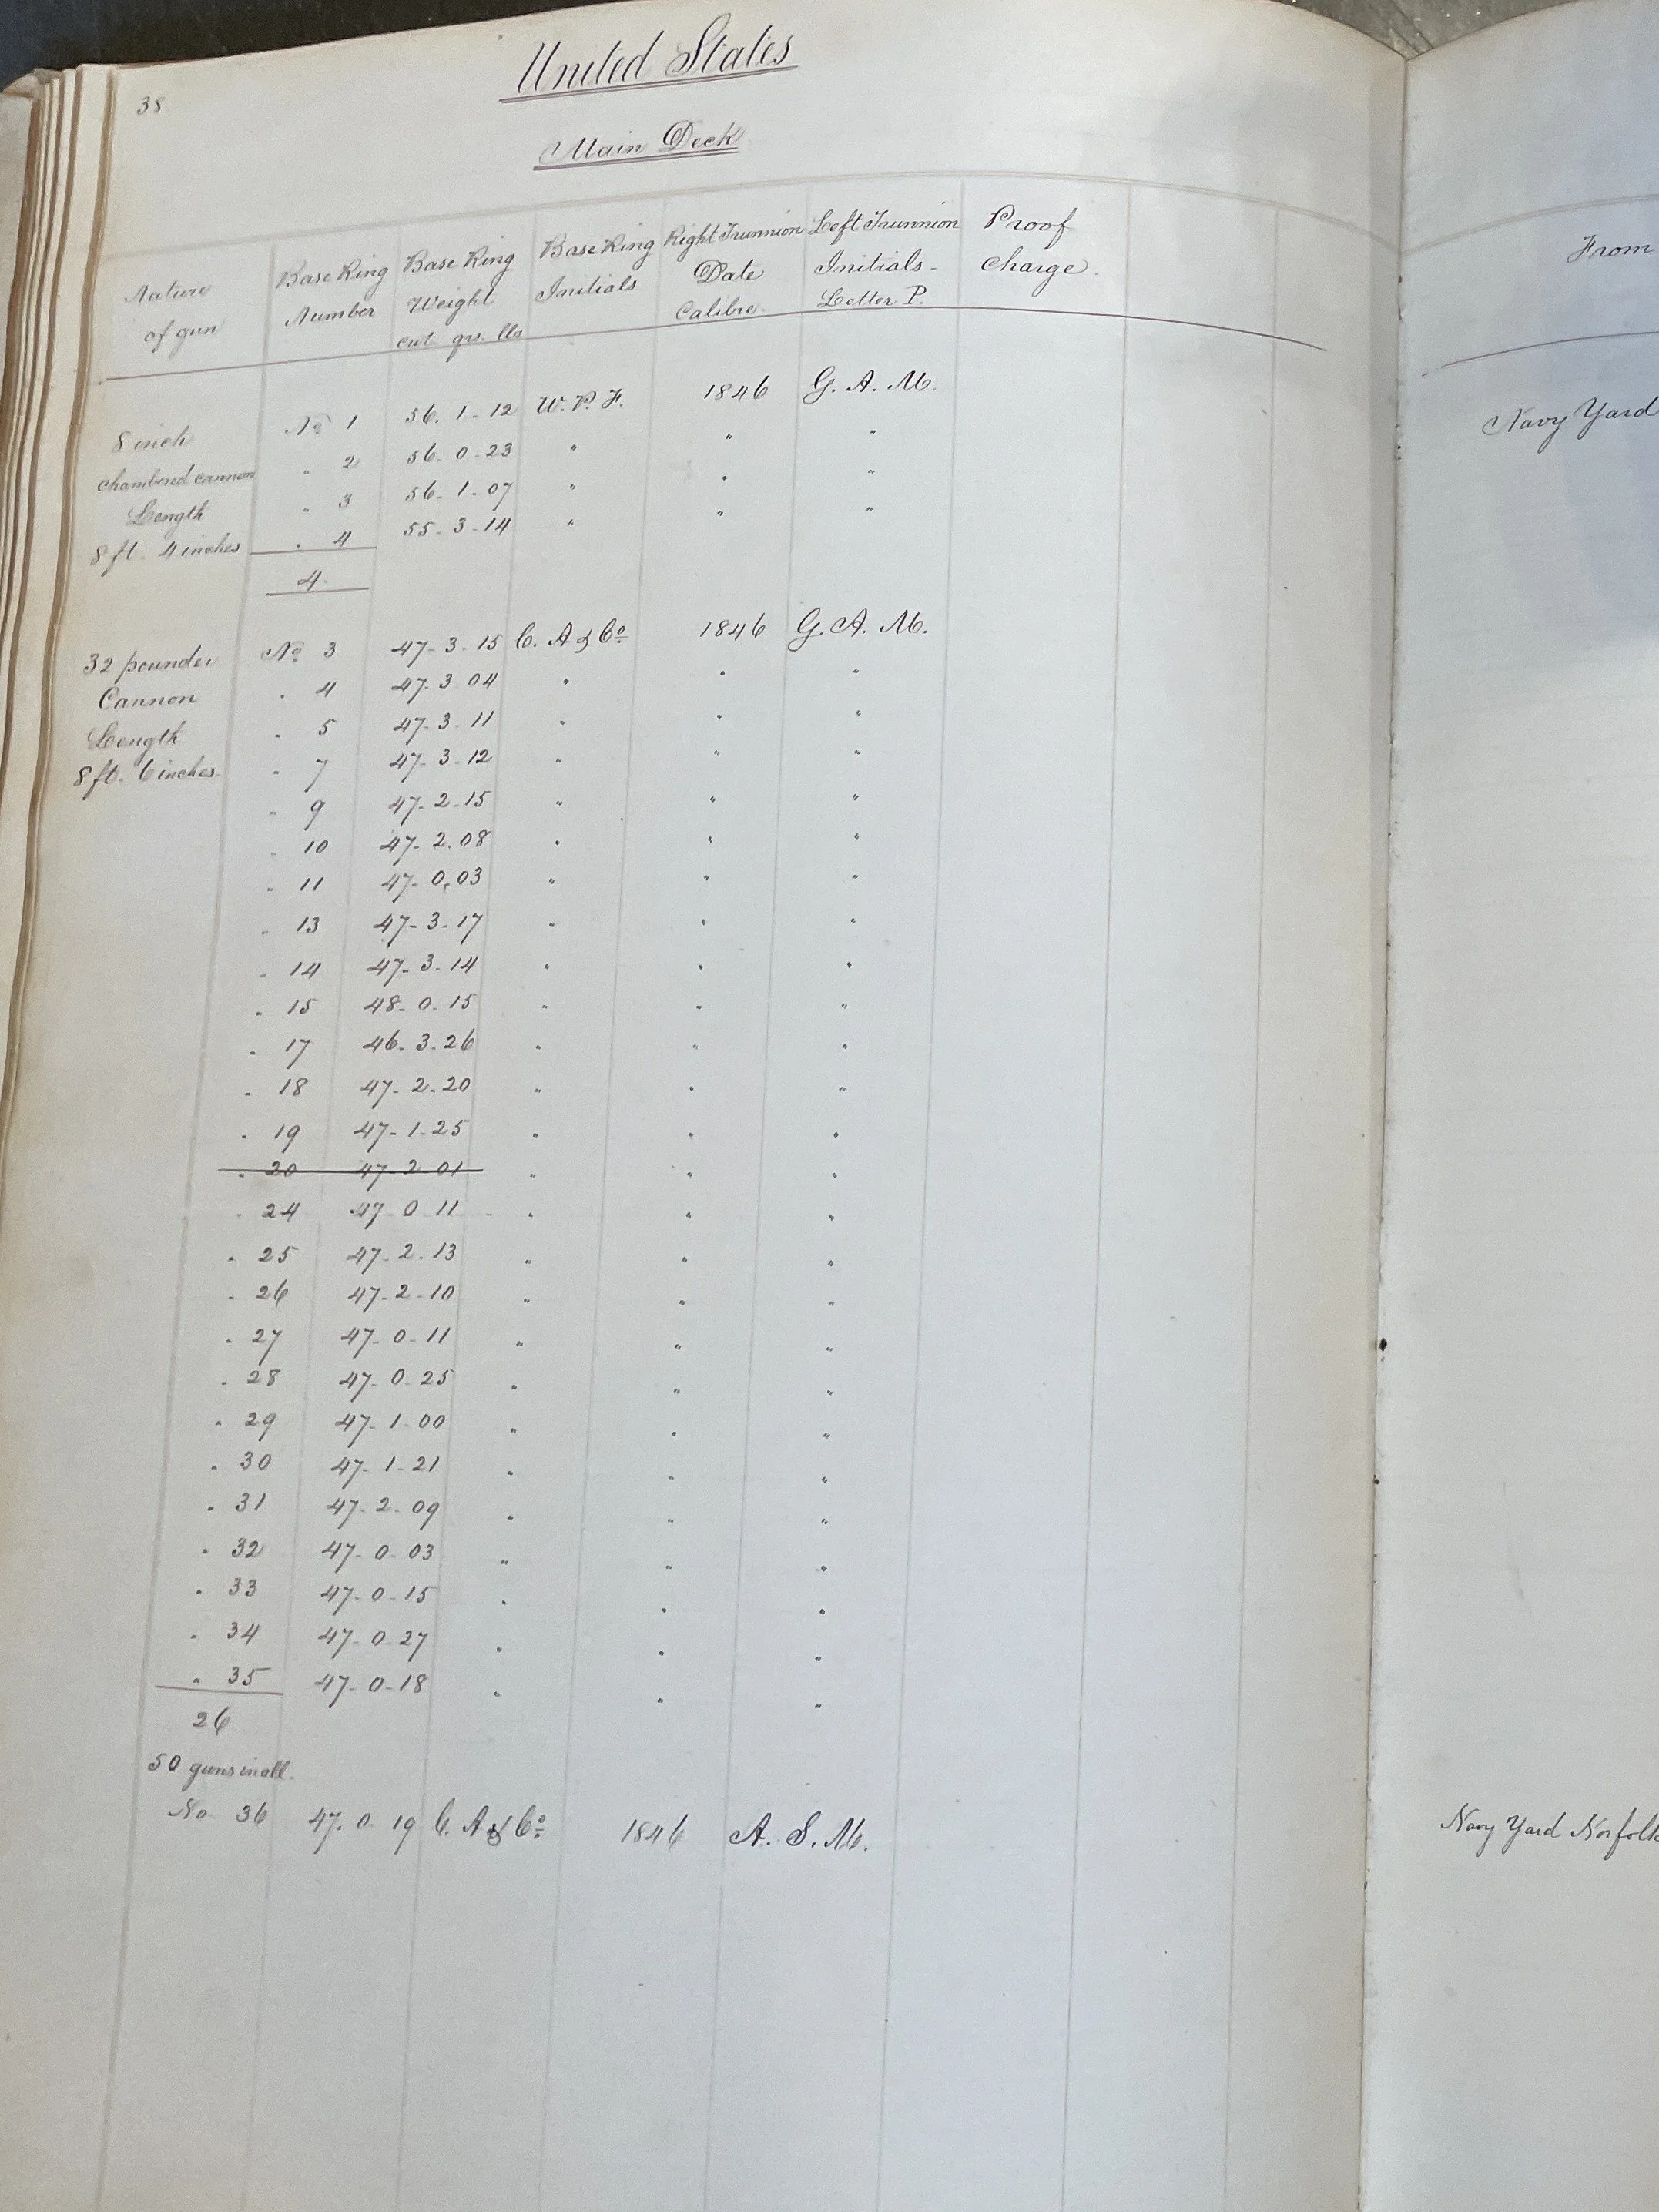 38
United States
Main Deck
Nature of gun Base Ring Number Base Ring Weight cwt qrs. lbs Base Ring Initials Right Trunnion Date Calibre. Left Trunnion Initials - Letter P. Proof Charge. From
8 inch No 1 56. 1 - 12 W. P. F. 1846 G. A. M. Navy Yard
chambered cannon " 2 56. 0. 23 " " "
Length " 3 56. 1. 07 " " "
8 ft. 4 inches " 4 55. 3. 14 " " "
4
32 pounder No 3 47. 3. 15 C. A & Co 1846 G. A. M.
Cannon " 4 47. 3 04 " " "
Length " 5 47. 3. 11 " " "
8 ft. 6 inches. " 7 47. 3. 12 " " "
" 9 47. 2. 15 " " "
" 10 47. 2. 08 " " "
" 11 47. 0. 03 " " "
" 13 47. 3. 17 " " "
" 14 47. 3. 14 " " "
" 15 48. 0. 15 " " "
" 17 46. 3. 26 " " "
" 18 47. 2. 20 " " "
" 19 47. 1. 25 " " "
" 20 47. 2 01 " " "
" 24 47 0 11 " " "
" 25 47. 2. 13 " " "
" 26 47. 2. 10 " " "
" 27 47. 0. 11 " " "
" 28 47. 0. 25 " " "
" 29 47. 1. 00 " " "
" 30 47. 1. 21 " " "
" 31 47. 2. 09 " " "
" 32 47. 0. 03 " " "
" 33 47. 0. 15 " " "
" 34 47. 0. 27 " " "
" 35 47. 0. 18 " " "
26
50 guns in all.
No 36 47. 0. 19 C. A & Co 1846 A. S. M. Navy Yard Norfolk